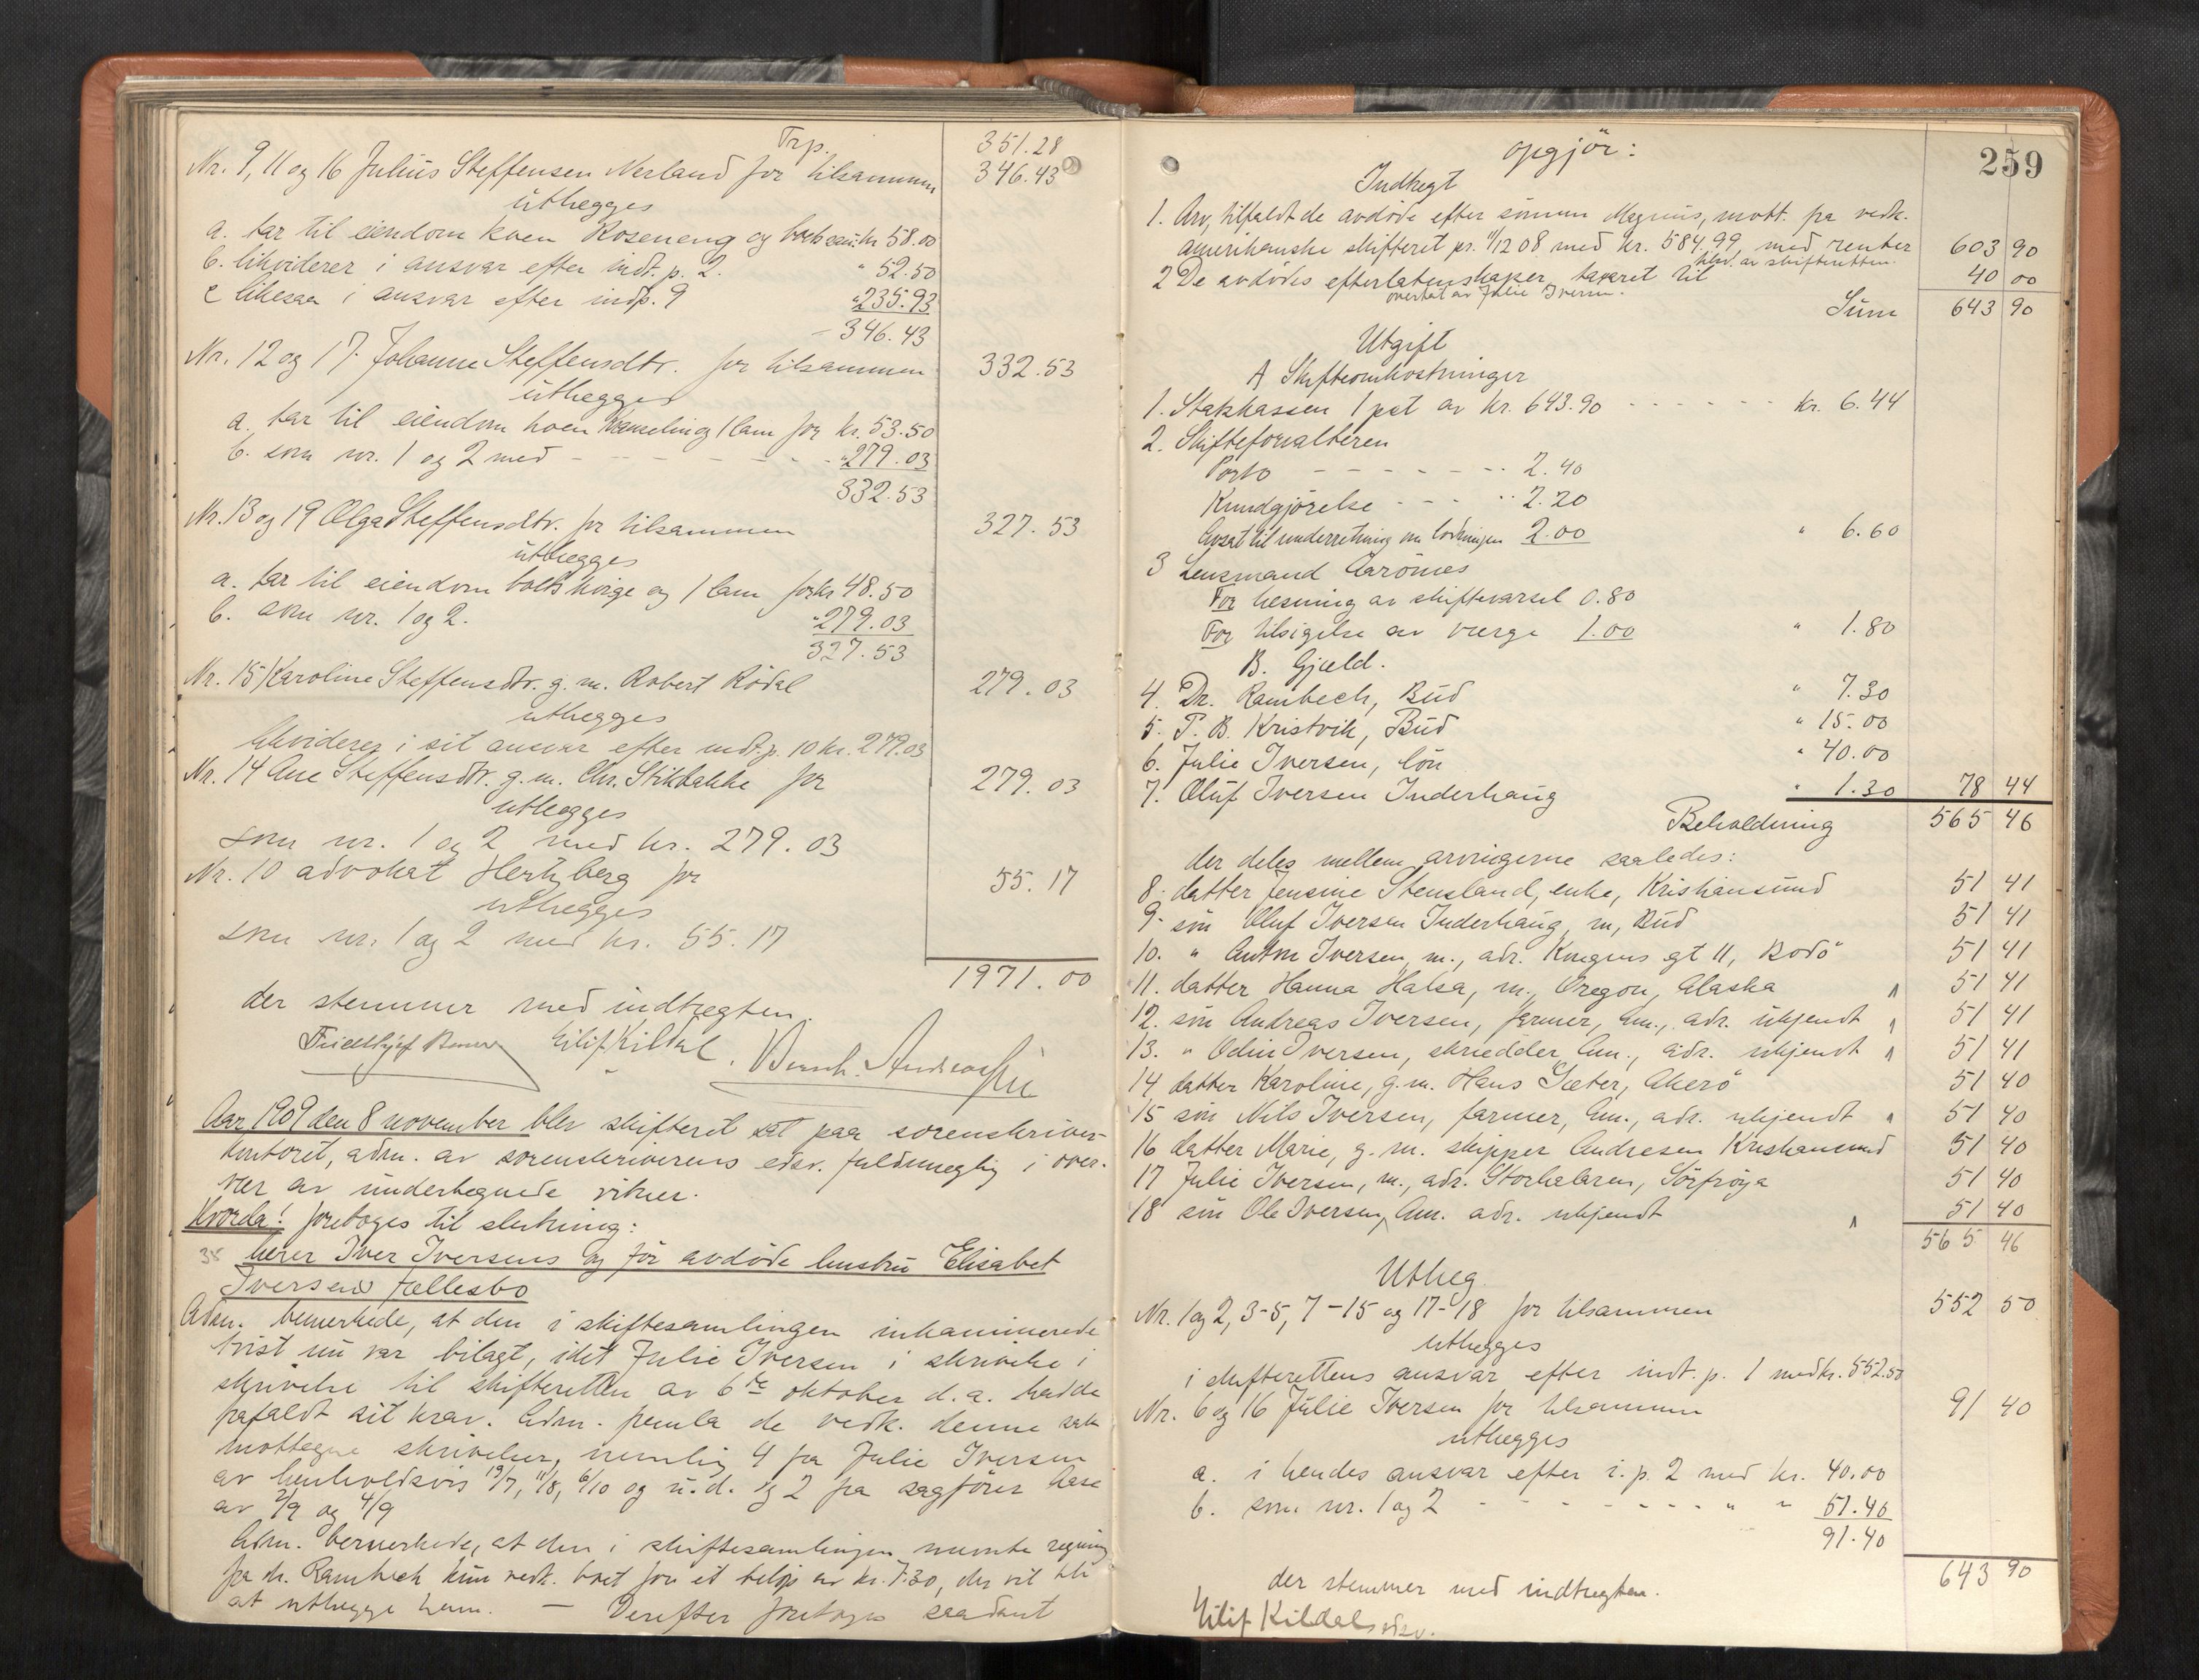 Trp. 351.28
Nr. 9, 11 og 16 Julius Steffensen Nerland for tilsammen 346.43
utlægges
a. tar til eiendom koen Roseneng og kr 58.00
b. likviderer i ansvar efter indt. p. 2. " 52.50
c likesaa i ansvar efter indp. 9 " 235.93
346.43
Nr. 12 og 17. Johanne Steffensdtr. for tilsammen 332.53
utlægges
a. tar til eiendom koen og 1 lam for kr. 53.50
b. som nr. 1 og 2 med - - - - " 279.03
332.53
Nr. 13 og 19 Olga Steffensdtr. for tilsammen 327.53
utlægges
a. tar til eiendom kvige og 1 lam for kr 48.50
b. som nr. 1 og 2. " 279.03
327.53
Nr. 15 Karoline Steffensdtr. g. m. Robert Rödal 279.03
utlægges
likviderer i sit ansvar efter indt. p. 10 kr. 279.03
Nr. 14 Ane Steffensdtr. g. m. Chr. Stikbakke for 279.03
utlægges
som nr. 1 og 2 med kr. 279.03
Nr. 10 advokat Hertzberg for 55.17
utlægges
som nr. 1 og 2 med kr. 55.17
1971.00
der stemmer med indtægten.
Eilif Kildal.
Aar 1909 den 8 november blev skifteret sat paa sorenskriver-
kontoret, adm. av sorenskriverens edsv. fuldmægtig i over-
vær av undertegnede vitner.
Hvorda! foretoges til slutning:
38 Iver Iversens og før avdöde hustru Elisabet
Iversens fællesbo
Adm. bemerkede, at den i skiftesamlingen
tvist nu var bilagt, idet Julie Iversen i skrivelse i
skrivelse til skifteretten av 6te oktober d. a. hadde
frafaldt sit krav. Adm. fremla de vedk. denne sak
mottagne skrivelser, nemlig 4 fra Julie Iversen
av henholdsvis 19/7, 11/8, 6/10 og u. d. og 2 fra sagförer Aase
av 2/9 og 4/9
Adm. bemerkede, at den i skiftesamlingen nævnte regning
fra dr. Rambech kun vedk. boet for et belöp av kr. 7.30, der vil bli
at utlægge ham. — Derefter foretoges saadant
259
opgjör:
Indtægt
1. Arv, tilfaldt de avdöde efter sönnen Magnus, mott. fra vedk.
amerikanske skifteret pr. 11/12 08 med kr. 584.99, med renter 603 90
2 De avdödes efterlatenskaper, taxeret til 40 00
overtat av Julie Iversen.
Sum 643 90
Utgift
A Skifteomkostninger
1. Statskassen 1 pct av kr. 643.90 - - - - - kr. 6.44
2. Skifteforvalteren
Porto - - - - - - 2.40
Kundgjörelse - - - 2.20
Avsat til underretning om lodningen 2.00 " 6.60
3 Lensmand Aarönes
For læsning av skiftevarsel 0.80
For tilsigelse av værge 1.00 " 1.80
B. Gjæld.
4. Dr. Rambech, Bud " 7.30
5. P. B. Kristvik, Bud " 15.00
6. Julie Iversen, lön " 40.00
7. Oluf Iversen Inderhaug " 1.30 78 44
Beholdning 565 46
der deles mellem arvingerne saaledes:
8. datter Jensine Stensland, enke, Kristiansund 51 41
9. sön Oluf Iversen Inderhaug, m, Bud 51 41
10. " Anton Iversen, m., adr. Kongens gt 11, Bodö 51 41
11. datter Hanna Halsa, m., Oregon, Alaska 51 41
12. sön Andreas Iversen, farmer, Am., adr. ukjendt 51 41
13. " Odin Iversen, skrædder, Am., adr. ukjendt 51 41
14 datter Karoline, g. m. Hans Sæter, Akerö 51 40
15 sön Nils Iversen, farmer, Am., adr. ukjendt 51 40
16 datter Marie, g. m. skipper Andresen Kristiansund 51 40
17 Julie Iversen, m., adr. Storhalaren, Sörfröya 51 40
18 sön Ole Iversen, Am. adr. ukjendt 51 40
565 46
Utlæg.
Nr. 1 og 2, 3-5, 7-15 og 17-18 for tilsammen 552 50
utlægges
i skifterettens ansvar efter indt. p. 1 med kr. 552.50
Nr. 6 og 16 Julie Iversen for tilsammen 91 40
utlægges
a. i hendes ansvar efter i. p. 2 med kr. 40.00
b. som nr. 1 og 2 - - - - - " " 51.40
91.40
643 90
der stemmer med indtægten.
Eilif Kildal edsv.